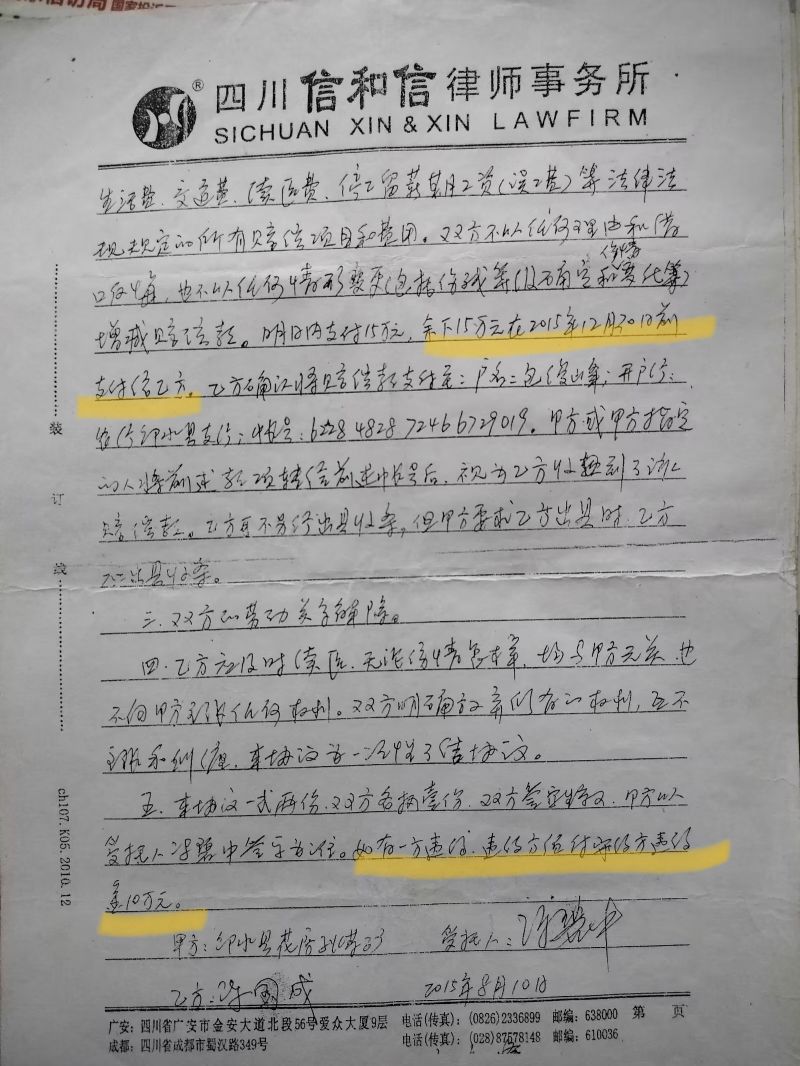 信访局 国家投
四川信和信律师事务所
®
SICHUAN XIN & XIN LAWFIRM
生活费、交通费、续医费、停工留薪期工资(误工费)等法律法
规规定的所有赔偿项目和费用。双方不以任何理由和借
口反悔,也不以任何情形变更(包括伤残等级不确定和
增减赔偿款。明日内支付15万元,余下15万元在2015年12月30日前
支付给乙方。乙方确认将赔偿款支付至:户名:包俊山;开户行:
邻水县支行;卡号:6228 4828 7246 6729019。甲方或甲方指定
的人将前述款项转至前述卡号后,视为乙方收到了
赔偿款。乙方可不另行出具收条,但甲方要求乙方出具时,乙方
出具收条。
三、双方的劳动关系解除。
四、乙方应及时续医,无论伤情怎样,均与甲方无关,也
不向甲方主张任何权利。双方明确放弃所有的权利,互不
纠缠,本协议为一次性了结协议。
五、本协议一式两份,双方各执壹份,双方签字生效,甲方以
受托人签字为准。如有一方违约,违约方应付守约方违约
金10万元。
甲方:邻水县 受托人:
乙方: 2015年8月10日
装
订
线
ch107.K05.2010.12
广安:四川省广安市金安大道北段56号爱众大厦9层 电话(传真):(0826)2336899 邮编:638000 第 页
成都:四川省成都市蜀汉路349号 电话(传真):(028)87578148 邮编:610036